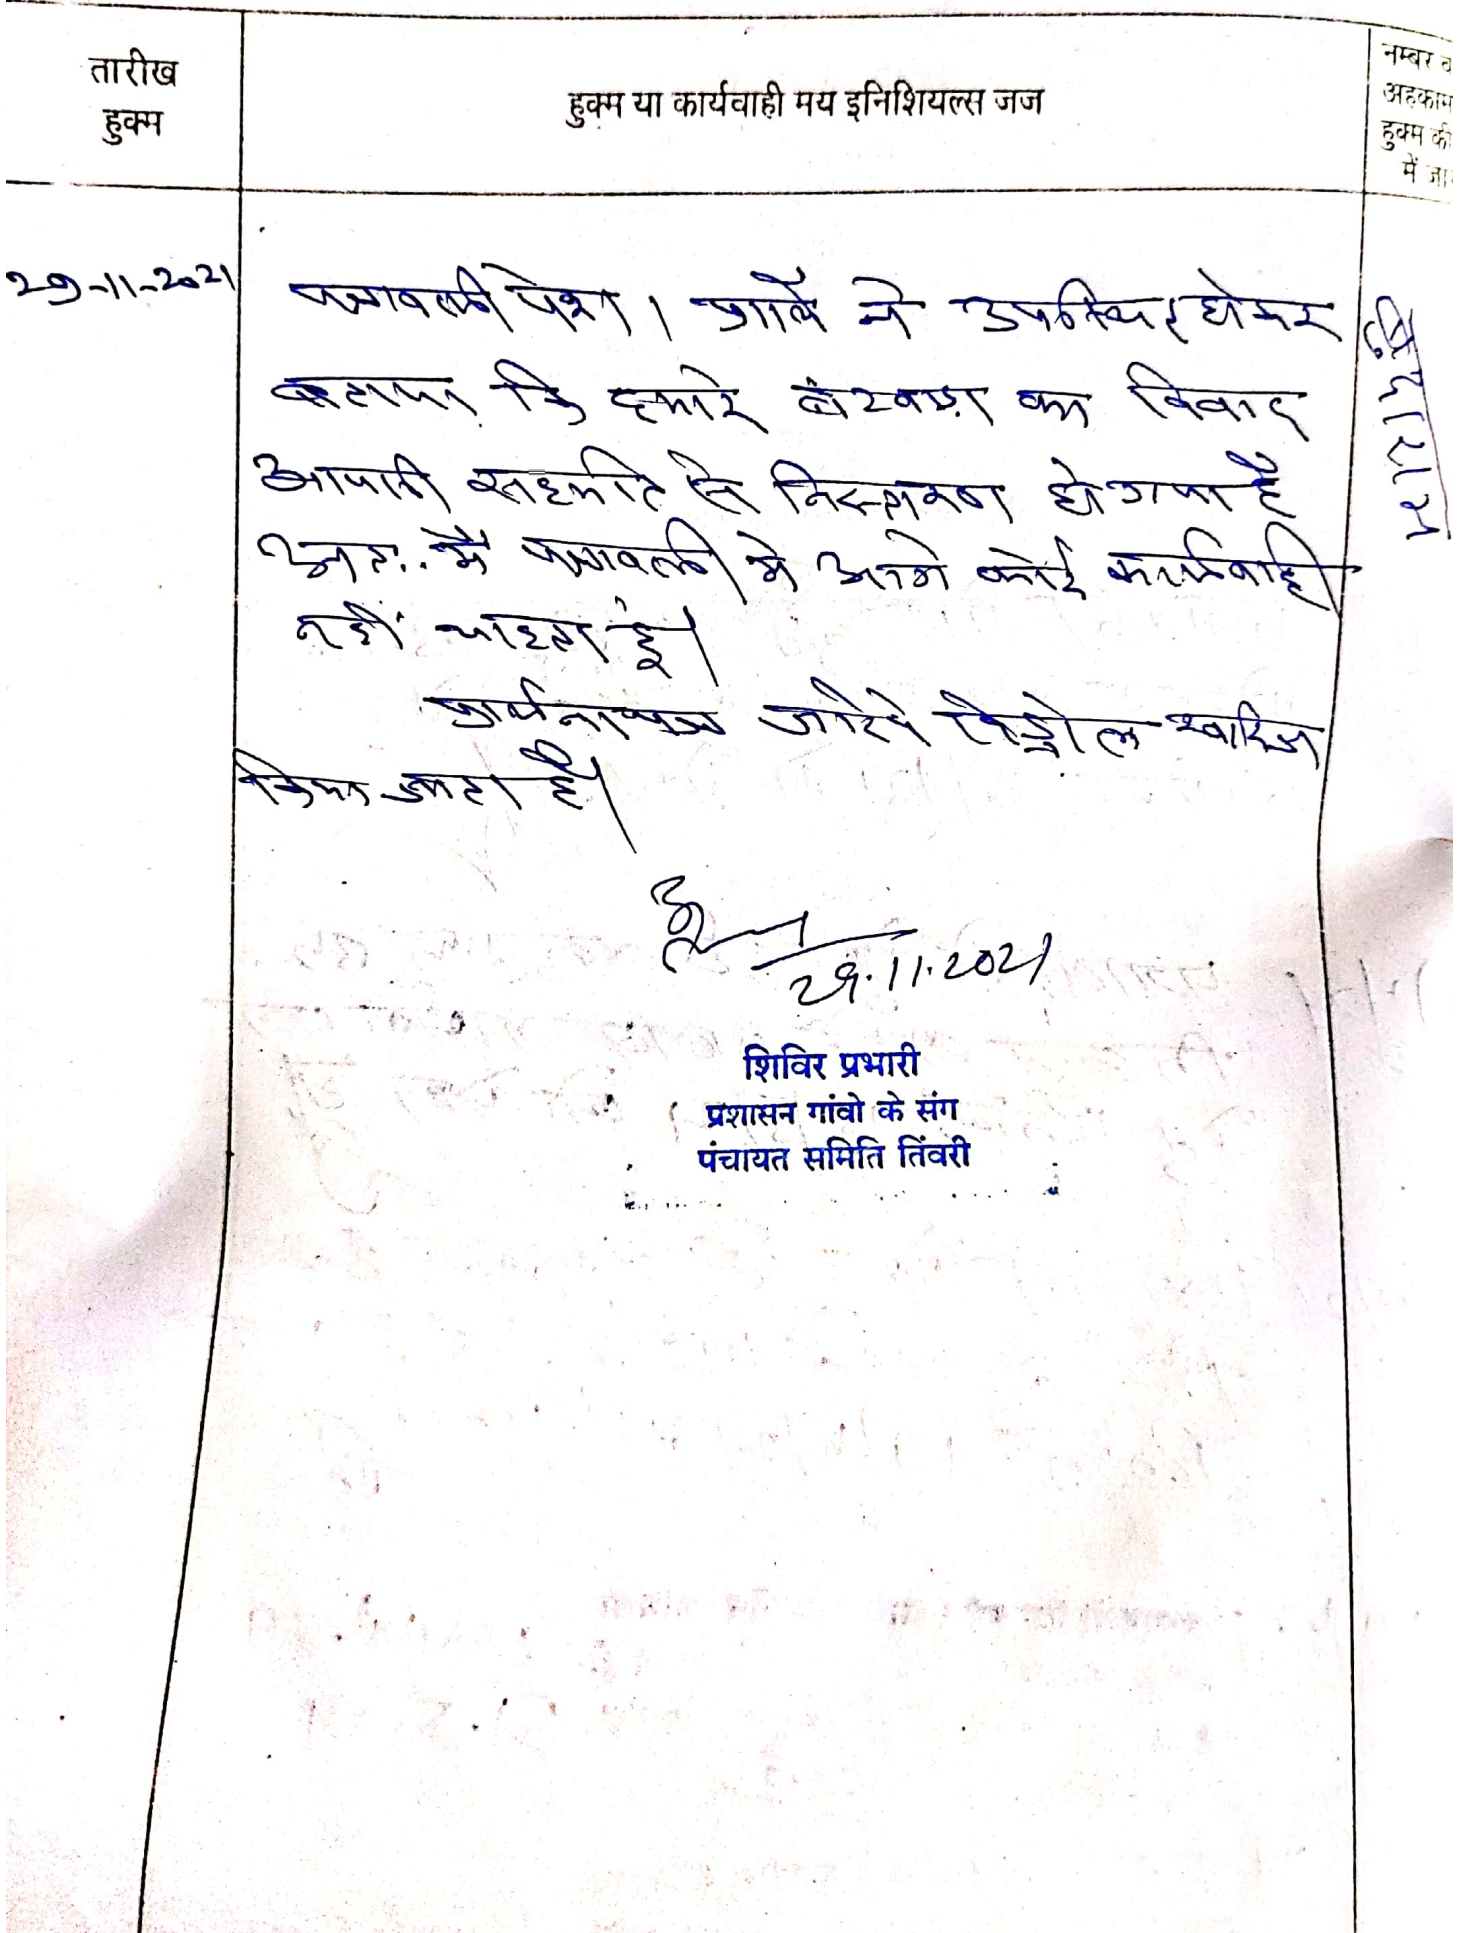 तारीख
हुक्म
हुक्म या कार्यवाही मय इनिशियल्स जज
नम्बर व
अहकाम
हुक्म की
में जा
29-11-2021
पत्रावली पेश। प्रार्थी ने उपस्थित होकर
बताया कि हमारे बंटवाड़ा का विवाद
आपसी सहमति से निस्तारण हो गया है
अतः मैं पत्रावली मे आगे कोई कार्यवाही
नहीं चाहता हूं।
प्रार्थनापत्र जरिये विड्रोल खारिज
किया जाता है।
29.11.2021
शिविर प्रभारी
प्रशासन गांवो के संग
पंचायत समिति तिंवरी